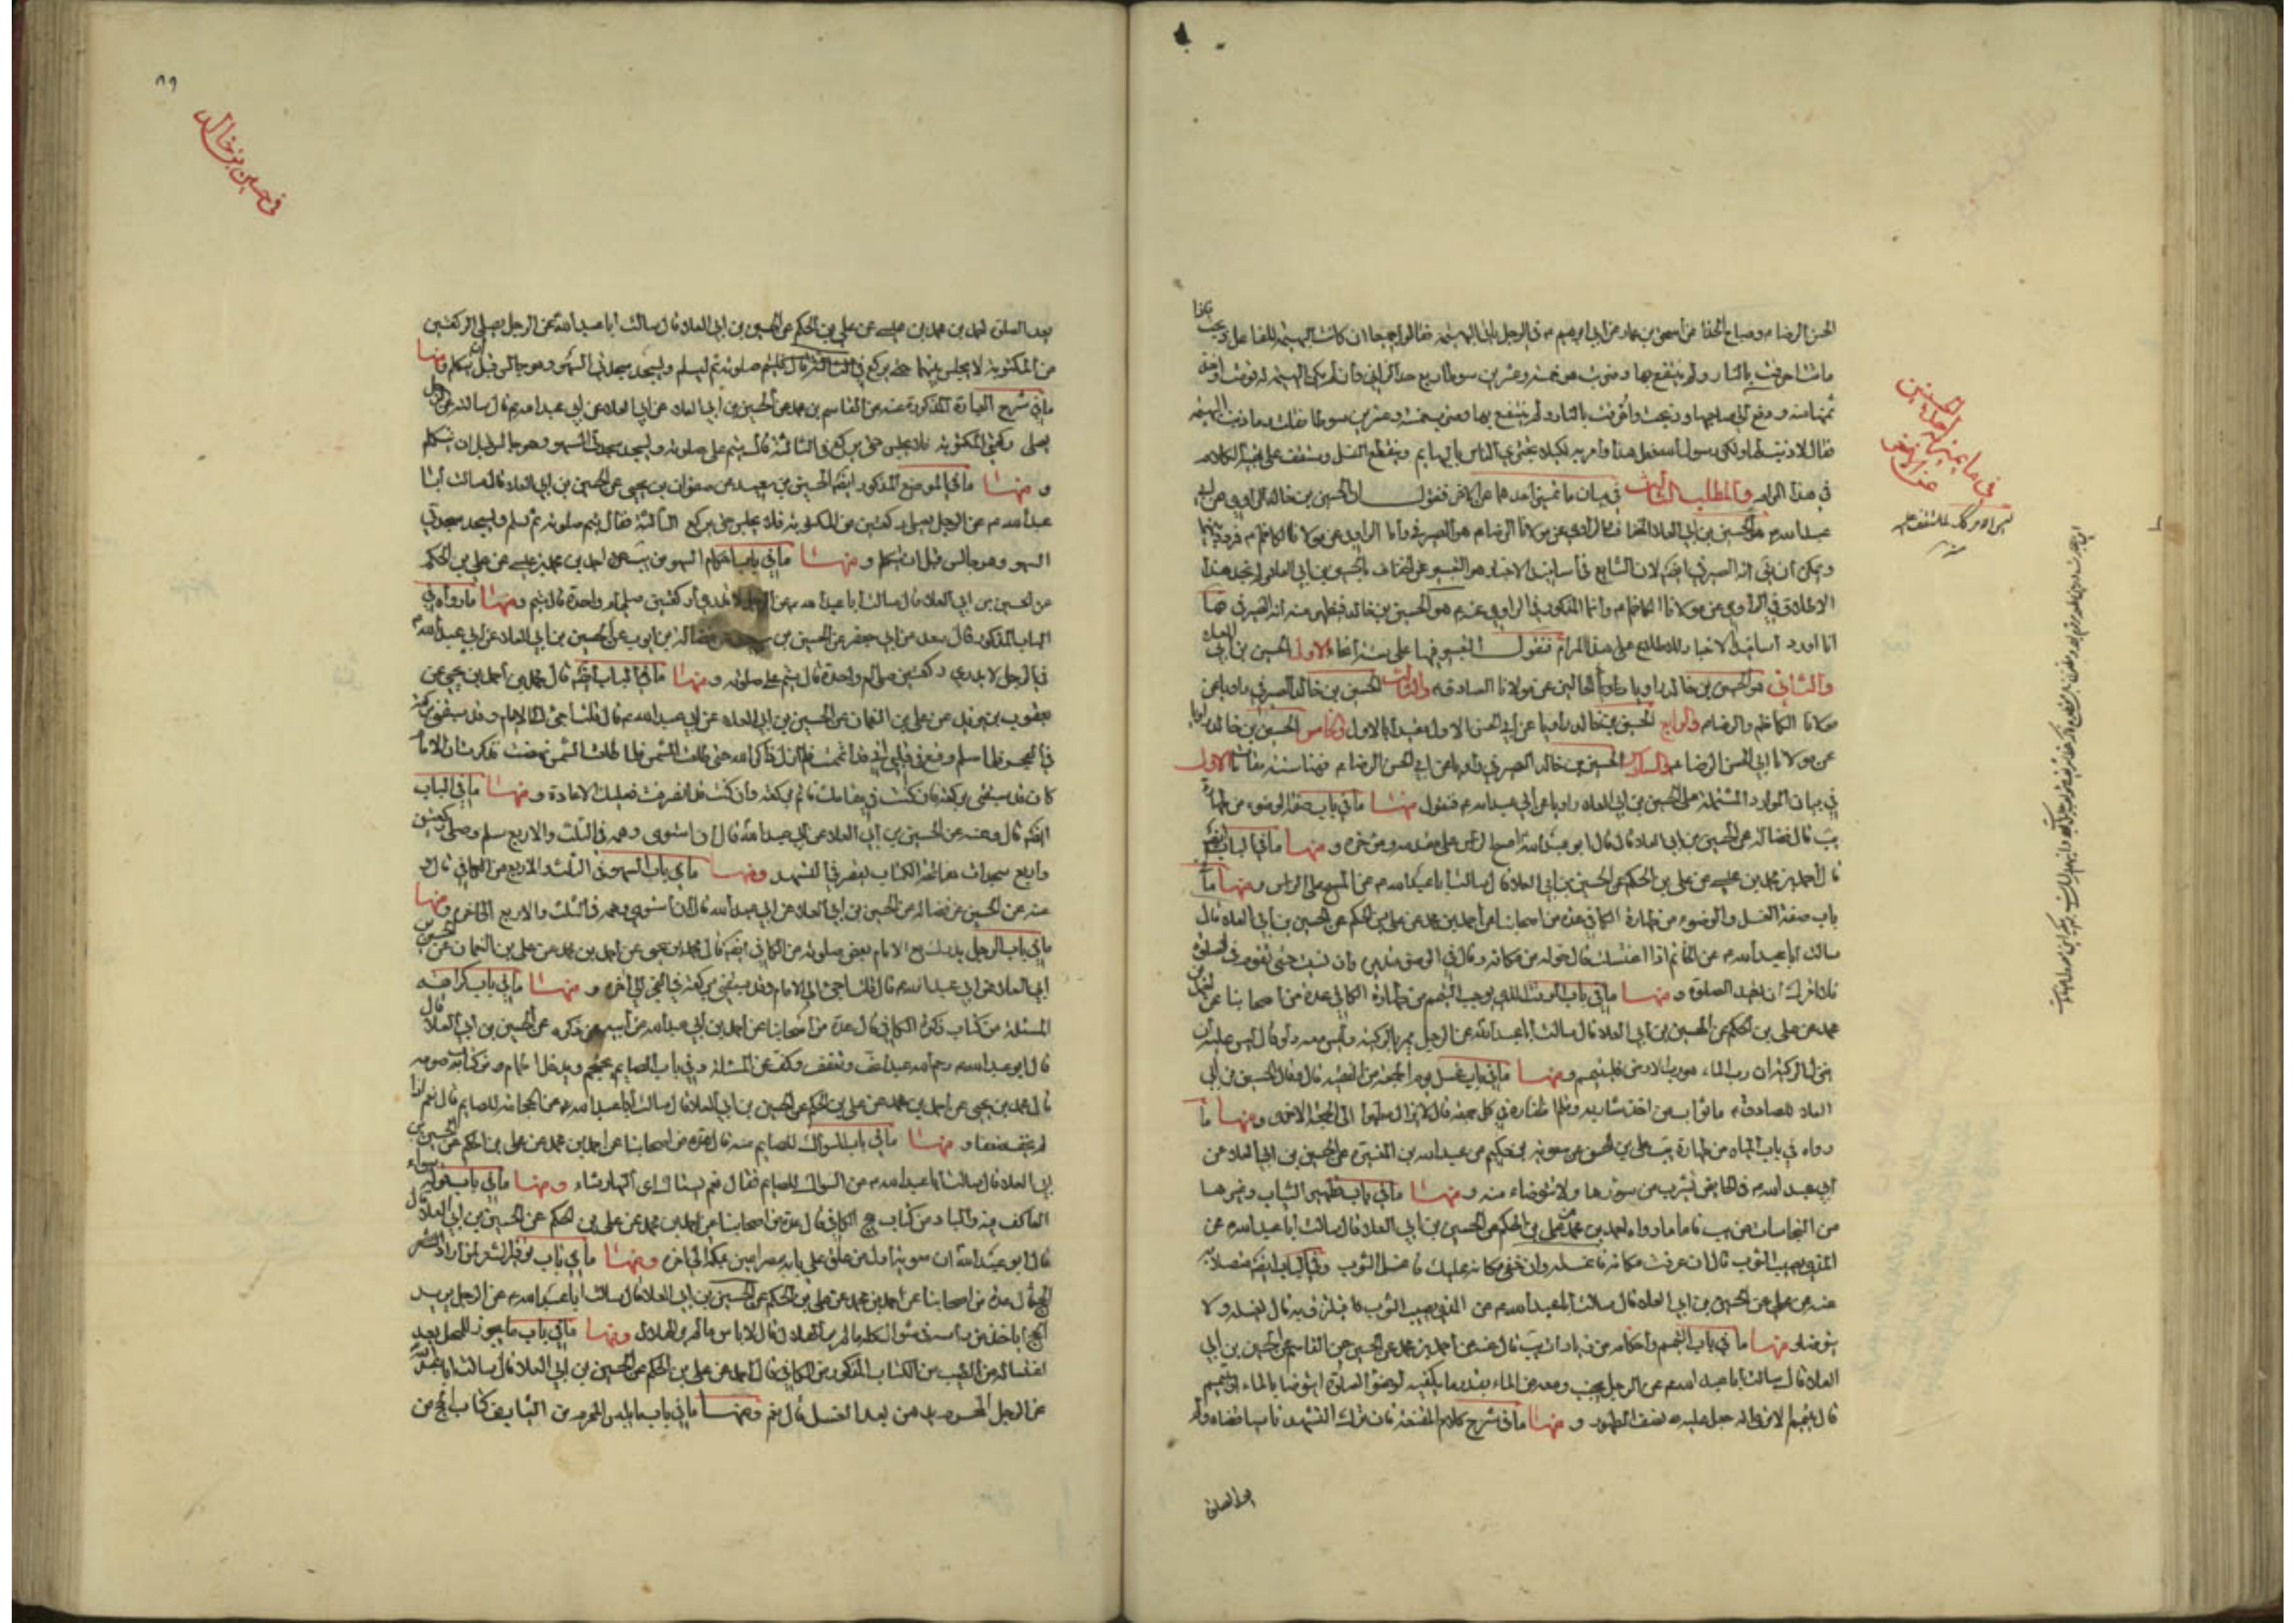 الحسن الرضا م وصباح الحذا عن اسحق بن عمار عن ابي ابرهيم م في الرجل ياتي البهيمة فقالوا جميعا ان كانت البهيمة للفاعل ذبحت
ماتت احرقت بالنار ولم ينتفع بها وضرب هو خمسة وعشرين سوطا ربع حد الزاني وان لم تكن البهيمة له قومت واخذ
ثمنها منه ودفع الى صاحبها وذبحت واحرقت بالنار ولم ينتفع بها وضرب خمسة وعشرين سوطا فقلت وما ذنب البهيمة
فقال لا ذنب لها ولكن رسول الله فعل هذا وامر به لكيلا يجتري الناس بالبهايم وينقطع النسل وستقف على تتمة الكلام
في هذا المرام والمطلب الثالث في بيان ما تميز احدهما عن الاخر فنقول ان الحسين بن خالد الراوي عن ابي
عبد الله م هو الحسين بن ابي العلاء الخفاف والراوي عن مولانا الرضا م هو الصيرفي واما الراوي عن مولانا الكاظم م
ويمكن ان يق انه الصيرفي ايضا لان الشايع في اسانيد الاخبار هو التعبير عن الخفاف بالحسين بن ابي العلا ولم نجد هذا
الاطلاق في الراوي عن مولانا الكاظم م وانما المذكور في الراوي عنه م هو الحسين بن خالد فيظهر منه انه الصيرفي
انا اورد اسانيد الاخبار للاطلاع على هذا المرام فنقول التعبير فيها على ستة انحاء الاول الحسين بن ابي العلاء
والثاني هو الحسين بن خالد راويا عن مولانا الصادق م والثالث الحسين بن خالد الصيرفي راويا عن
مولانا الكاظم والرضا م والرابع الحسين بن خالد راويا عن ابي الحسن الاول والخامس الحسين بن خالد راويا
عن مولانا ابي الحسن الرضا م والسادس الحسين بن خالد الصيرفي راويا عن ابي الحسن الرضا م فهنا ستة مقامات الاول
في بيان الموارد المشتملة على الحسين بن ابي العلاء راويا عن ابي عبد الله م فنقول منها ما في باب صفة الوضوء من طهارة
يب قال فضالة عن الحسين بن ابي العلا قال قال ابو عبد الله امسح الراس على مقدمه ومؤخره ومنها ما في الباب ايضا
قال احمد بن محمد بن عيسى عن علي بن الحكم عن الحسين بن ابي العلا قال سالت ابا عبد الله م عن المسح على الراس ومنها ما في
باب صفة الغسل والوضوء من طهارة الكافي عدة من اصحابنا عن احمد بن محمد عن علي بن الحكم عن الحسين بن ابي العلاء قال
سالت ابا عبد الله م عن الخاتم اذا اغتسلت قال حوله من مكانه وقال في الوضوء تديره وان نسيت حتى تقوم في الصلوة
فلا امرك ان تعيد الصلوة ومنها ما في باب الوقت الذي يوجب التيمم من طهارة الكافي عدة من اصحابنا عن احمد بن
محمد عن علي بن الحكم عن الحسين بن ابي العلاء قال سالت ابا عبد الله عن الرجل يمر بالركية وليس معه دلو قال ليس عليه ان
ينزل الركية ان رب الماء هو رب الارض فليتيمم ومنها ما في باب غسل يوم الجمعة من الفقيه قال وقال الحسين بن ابي
العلاء للصادق م ما ثواب من اخذ شاربه وقلم اظفاره في كل جمعة قال لا يزال مطهرا الى الجمعة الاخرى ومنها ما
رواه في باب المياه من طهارة يب علي بن الحسن عن معوية بن حكيم عن عبد الله بن المغيرة عن الحسين بن ابي العلاء عن
ابي عبد الله م في الحايض يشرب من سورها ولا يتوضا منه ومنها ما في باب تطهير الثياب وغيرها
من النجاسات من يب ما رواه احمد بن محمد عن علي بن الحكم عن الحسين بن ابي العلا قال سالت ابا عبد الله م عن
المني يصيب الثوب قال ان عرفت مكانه فاغسله وان خفي مكانه عليك فاغسل الثوب وفي الباب ايضا متصلا به
عنه عن علي عن الحسين بن ابي العلاء قال سالت ابا عبد الله م عن المذي يصيب الثوب فيلتزق به قال يغسله ولا
يتوضاء ومنها ما في باب التيمم واحكامه من زيادات يب قال عنه عن احمد بن محمد عن الحسين عن القاسم عن الحسين بن ابي
العلا قال سالت ابا عبد الله م عن الرجل يجنب ومعه من الماء بقدر ما يكفيه لوضوء الصلوة ايتوضا بالماء او يتيمم
قال يتيمم الا ترى انه جعل عليه نصف الطهور ومنها ما في شرح كلام المقنعة فان ترك التشهد ناسيا قضاه ولم
بعد الصلوة
في ما يميز احد الحسينين عن الاخر
في حسين بن خالد
بعد الصلوة احمد بن محمد بن عيسى عن علي بن الحكم عن الحسين بن ابي العلاء قال سالت ابا عبد الله عن الرجل يصلي الركعتين
من المكتوبة لا يجلس بينهما حتى يركع في الثالثة قال فليتم صلوته ثم ليسلم ويسجد سجدتي السهو وهو جالس قبل ان يتكلم ومنها
ما في شرح العبارة المذكورة عنه عن القاسم بن محمد عن الحسين بن ابي العلاء عن ابي عبد الله م قال سالته عن الرجل
يصلي ركعتي المكتوبة فلا يجلس حتى يركع في الثالثة قال يتم على صلوته ويسجد سجدتي السهو وهو جالس قبل ان يتكلم
ومنها ما في الموضع المذكور ايضا الحسين بن سعيد عن صفوان بن يحيى عن الحسين بن ابي العلاء قال سالت ابا
عبد الله م عن الرجل يصلي ركعتين من المكتوبة فلا يجلس حتى يركع الثالثة فقال يتم صلوته ثم يسلم ويسجد سجدتي
السهو وهو جالس قبل ان يتكلم ومنها ما في باب احكام السهو من يب احمد بن محمد بن عيسى عن علي بن الحكم
عن الحسين بن ابي العلا قال سالت ابا عبد الله م عن الرجل لا يدري اركعتين صلى ام واحدة قال يتم ومنها ما رواه في
الباب المذكور قال سعد عن ابي جعفر عن الحسين بن سعيد عن فضالة بن ايوب عن الحسين بن ابي العلاء عن ابي عبد الله م
في الرجل لا يدري ركعتين صلى ام واحدة قال يتم على صلوته ومنها ما في الباب ايضا قال محمد بن احمد بن يحيى عن
يعقوب بن يزيد عن علي بن النعمان عن الحسين بن ابي العلاء عن ابي عبد الله م قال قلت اجيء الى الامام وقد سبقني بركعة
في الفجر فلما سلم وقع في قلبي اني قد اتممت فلم ازل ذاكرا لله حتى طلعت الشمس فلما طلعت الشمس نهضت فذكرت ان الامام
كان قد سبقني بركعة قال فان كنت في مقامك فاتم بركعة وان كنت قد انصرفت فعليك الاعادة ومنها ما في الباب
ايضا قال وعنه عن الحسين بن ابي العلاء عن ابي عبد الله قال ان استوى وهمه في الثلث والاربع سلم وصلى ركعتين
واربع سجدات بفاتحة الكتاب يقصر في التشهد ومنها ما في باب السهو في الثلث والاربع من الكافي قال
عنه عن الحسين عن فضالة عن الحسين بن ابي العلاء عن ابي عبد الله قال ان استوى وهمه في الثلث والاربع الى اخره ومنها
ما في باب الرجل يدرك مع الامام بعض صلوته من الكافي ايضا قال محمد بن يحيى عن احمد بن محمد عن علي بن النعمان عن الحسين بن
ابي العلا عن ابي عبد الله م قال قلت اجيء الى الامام وقد سبقني بركعة في الفجر الى اخره ومنها ما في باب كراهية
المسئلة من كتاب زكوة الكافي قال عدة من اصحابنا عن احمد بن ابي عبد الله عن ابيه عمن ذكره عن الحسين بن ابي العلاء قال
قال ابو عبد الله م رحم الله عبدا عف وتعفف وكف عن المسئلة وفي باب الصايم يحتجم ويدخل الحمام من كتاب صومه
قال محمد بن يحيى عن احمد بن محمد عن علي بن الحكم عن الحسين بن ابي العلا قال سالت ابا عبد الله م عن الحجامة للصايم قال نعم اذا
لم يخف ضعفا ومنها ما في باب السواك للصايم منه قال عدة من اصحابنا عن احمد بن محمد عن علي بن الحكم عن الحسين بن
ابي العلاء قال سالت ابا عبد الله م عن السواك للصايم فقال نعم يستاك اي النهار شاء ومنها ما في باب قوله سواء
العاكف فيه والباد من كتاب حج الكافي قال عدة من اصحابنا عن احمد بن محمد عن علي بن الحكم عن الحسين بن ابي العلاء قال
قال ابو عبد الله ان معوية اول من علق على بابه مصراعين بمكة الى اخره ومنها ما في باب توفير الشعر لمن اراد
الحج قال عدة من اصحابنا عن احمد بن محمد عن علي بن الحكم عن الحسين بن ابي العلا قال سالت ابا عبد الله م عن الرجل يريد
الحج اياخذ من راسه في شوال كله ما لم ير الهلال قال لا باس ما لم ير الهلال ومنها ما في باب ما يجوز للمحرم بعد
اغتساله من الطيب من الكتاب المذكور من الكافي قال احمد عن علي بن الحكم عن الحسين بن ابي العلاء قال سالت ابا عبد الله
عن الرجل المحرم يدهن بعد الغسل قال نعم ومنها ما في باب ما يلبس المحرم من الثياب في كتاب الحج من